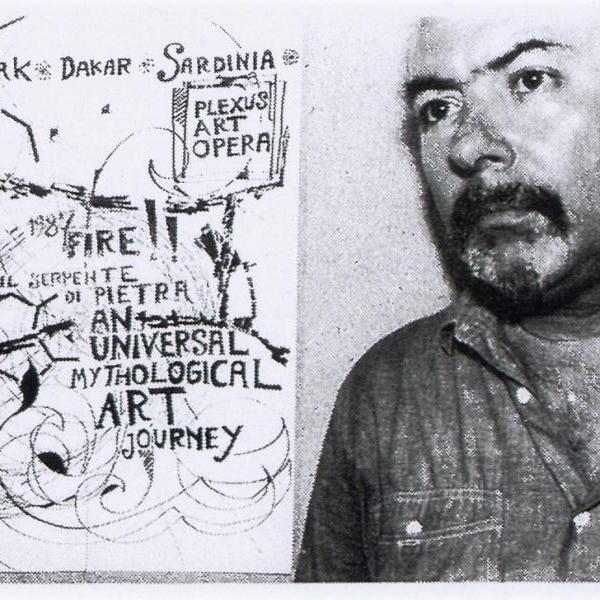 RK * DAKAR * SARDINIA *
PLEXUS
ART
OPERA
1987
FIRE!!
IL SERPENTE
DI PIETRA
AN
UNIVERSAL
MYTHOLOGICAL
ART
JOURNEY